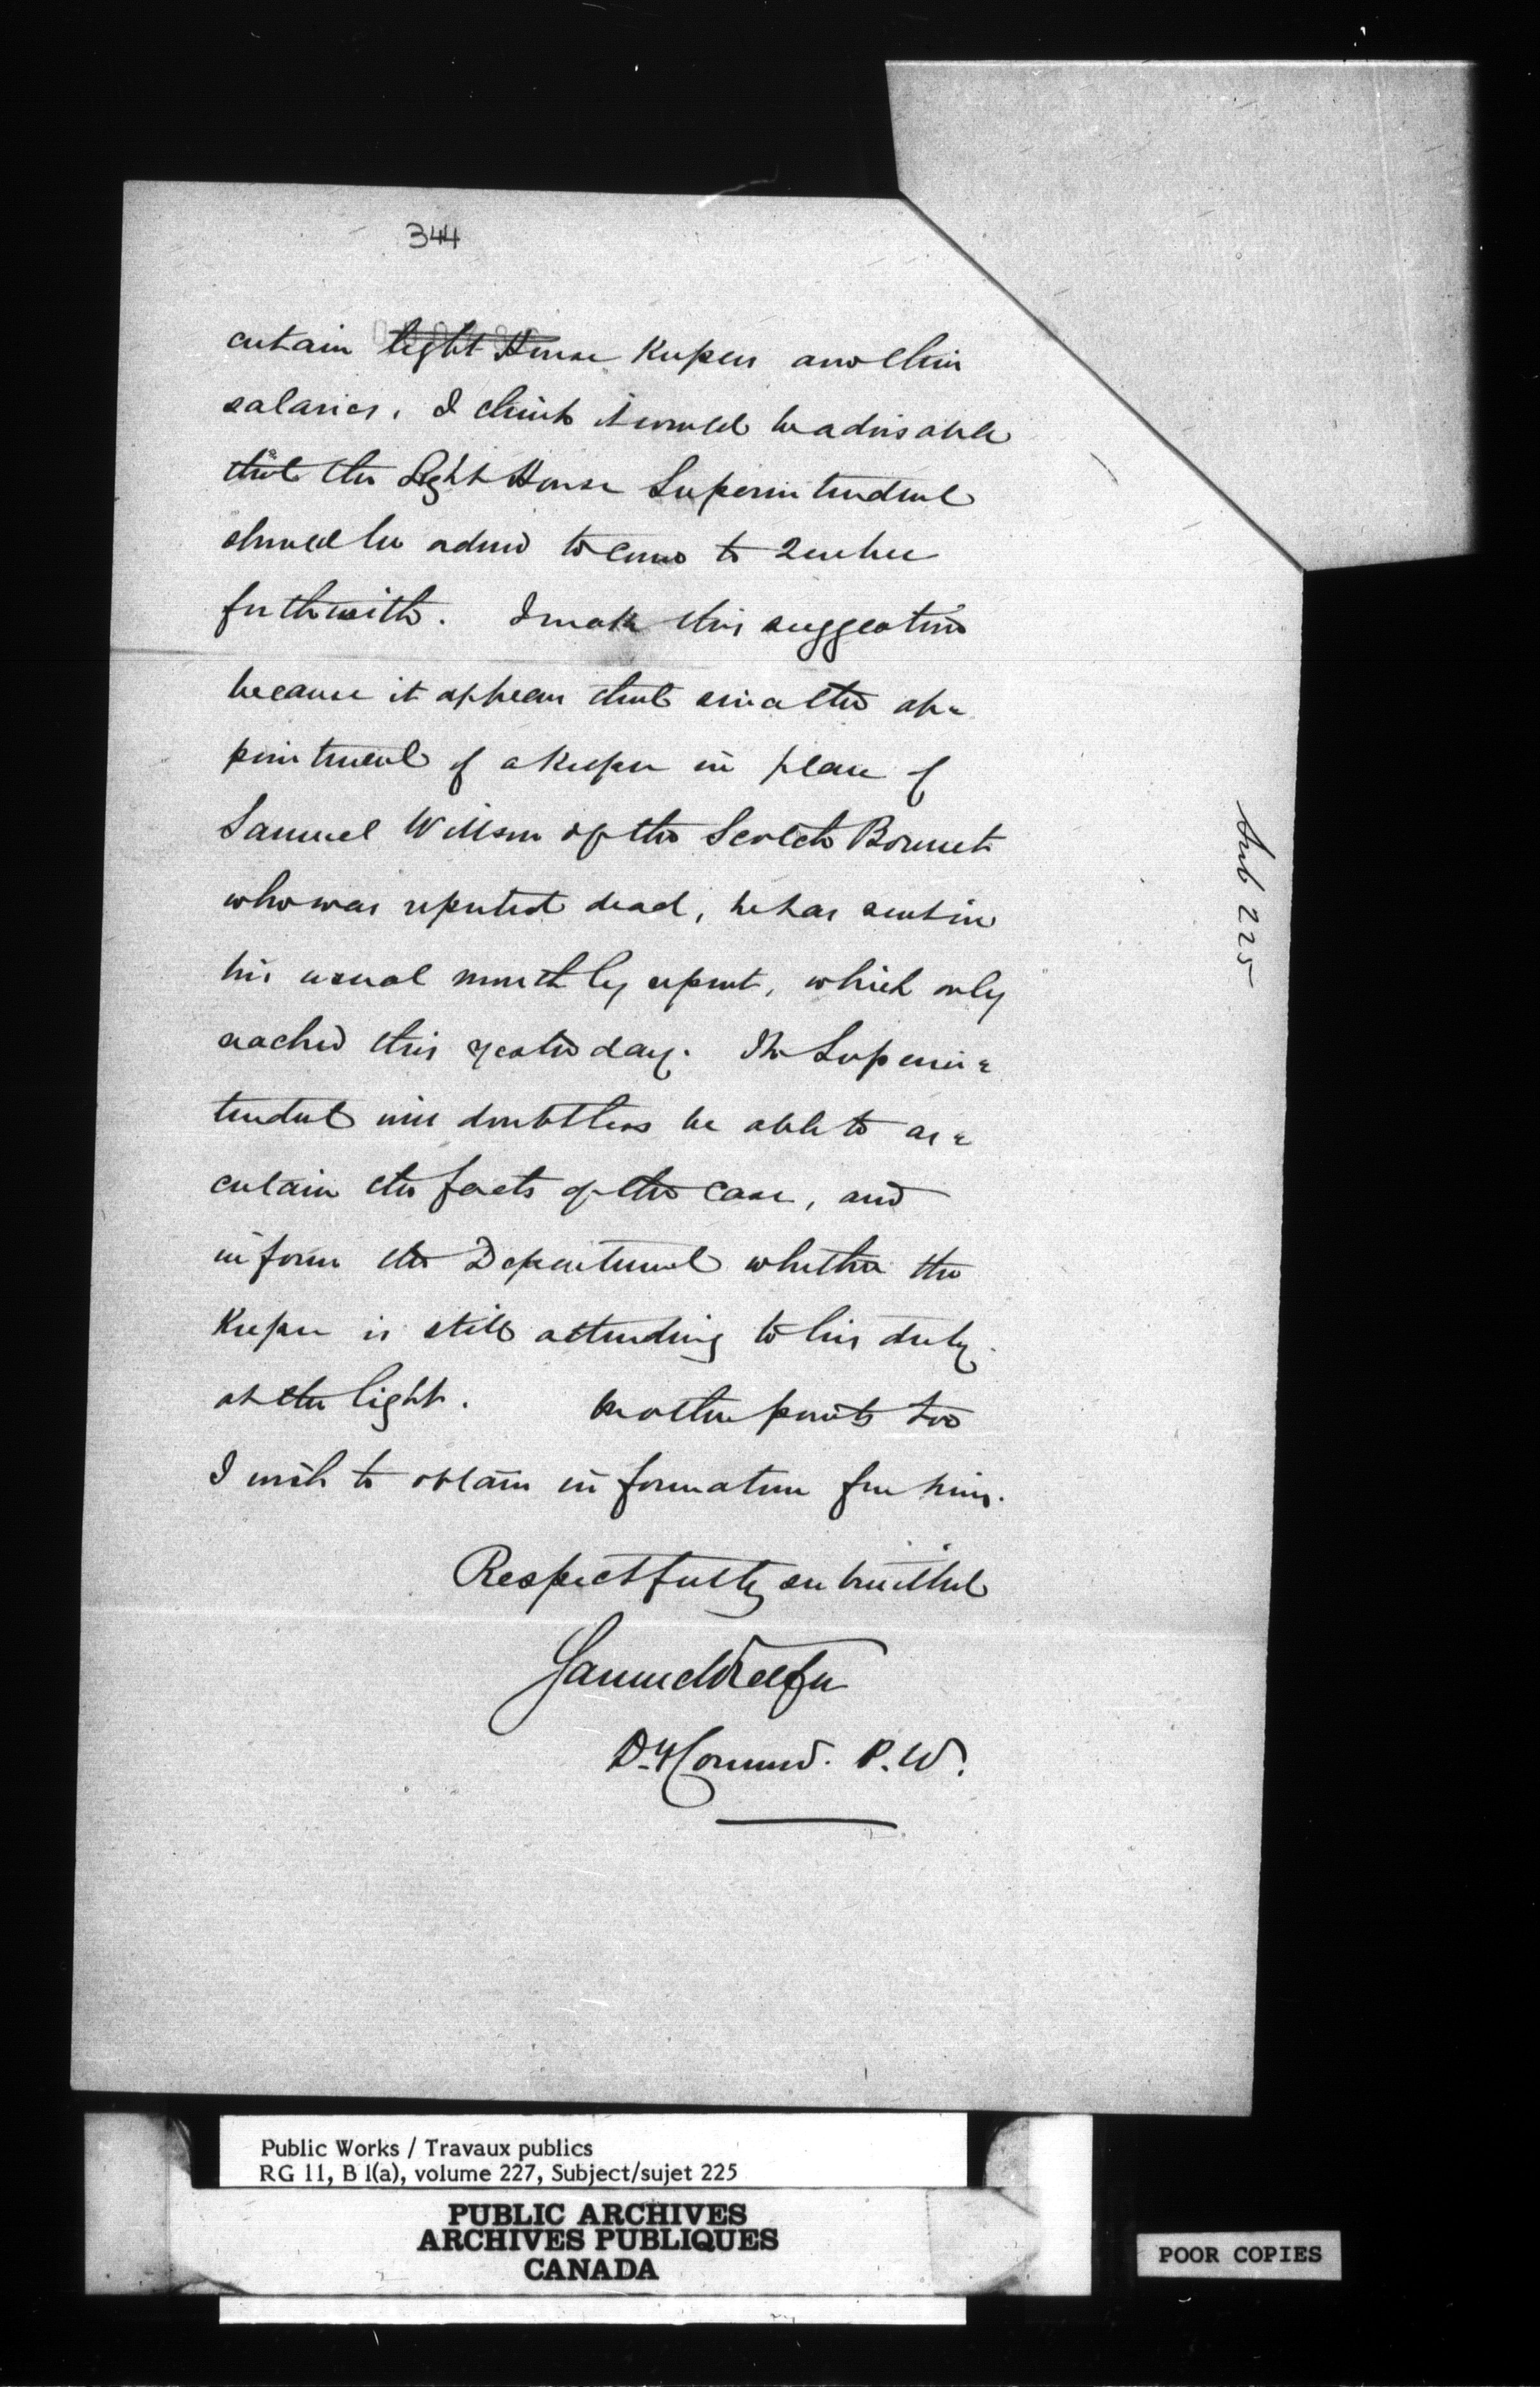 344
certain light House Keepers and their
salaries. I think it would be advisable
that the Light House Superintendent
should be asked to come to Quebec
forthwith. I make this suggestion
because it appears that since the ap=
pointment of a keeper in place of
Samuel Wilson of the Scotch Bonnet
who was reputed dead, he has sent in
his usual monthly report, which only
reached this yesterday. The Superin=
tendent will doubtless be able to as=
certain the facts of the case, and
inform the Department whether the
Keeper is still attending to his duty
at the light. On other points too
I wish to obtain information from him.
Respectfully submitted
Samuel Keefer
Dy Commr. P.W.
Sub 225
Public Works / Travaux publics
RG 11, B 1(a), volume 227, Subject/sujet 225
PUBLIC ARCHIVES
ARCHIVES PUBLIQUES
CANADA
POOR COPIES